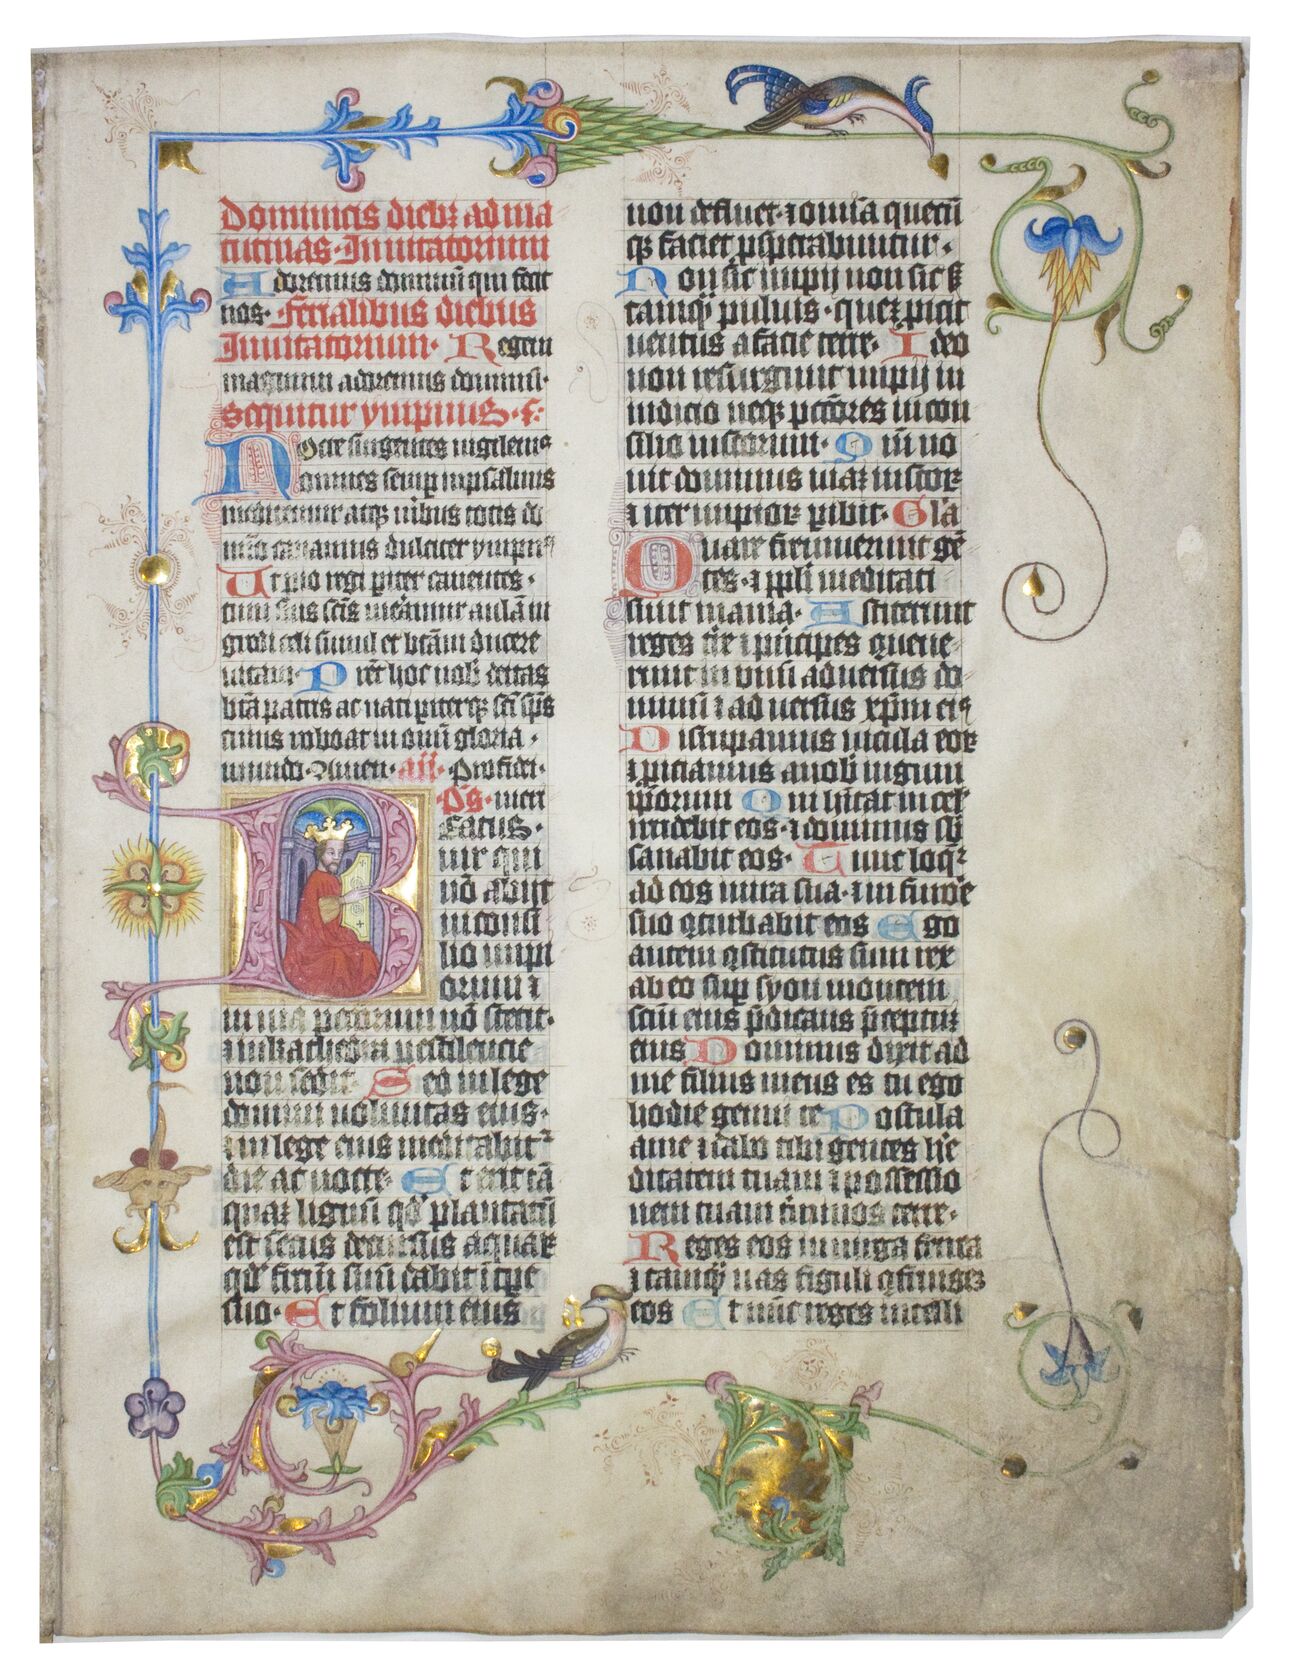 Dominicis dieb3 ad ma
tutinas · Inuitatorium
Adoremus dominū qui fecit
nos · Ferialibus diebus
Inuitatorium · Regem
magnum adoremus dominū ·
Sequitur ympnus ·
Nocte surgentes vigilemꝰ
omnes semp in psalmis
meditemur atq3 uibus totis do
mīo canamus dulciter ympn
Ut pio regi pariter canentes ·
cum suis scīs mereamur aulā in
gredi celi simul et btām ducere
uitam · Prēt hoc nob deitas
btā patris ac nati piterq3 scī spūs
cuius reboat in omī gloria ·
mundo · Amen · añ · Pro fidei ·
ps · men
Beatus ·
uir qui
nō abijt
in consi
lio impi
orum ⁊
in uia pctorum nō stetit ·
⁊ in kathedra pestilencie
non sedit · Sed in lege
domini uoluntas eius ·
⁊ in lege eius meditabit᷑
die ac nocte · Et erit tā
quaꝫ lignū qd plantatū
est secus decursus aquaꝝ
qd fructū suū dabit ī tpe
suo · Et folium eius
non defluet · ⁊ omīa quecū
q3 faciet psperabuntur ·
Non sic impij non sic sꝫ
tamq̄ puluis · queꝫ picit
uentus a facie terre · Ideo
non resurgunt impij in
iudicio neq3 pctōres in con
silio iustorum · Qm̄ no
uit dominus uiaꝫ iustoꝝ
⁊ iter impioꝝ pibit · Glā
Quare fremuerunt gē
tes · ⁊ ppli meditati
sunt inania · Astiterunt
reges tr̄e ⁊ pncipes quene
runt in vnū aduersus do
minū ⁊ aduersus xp̄m eiꝰ
Disrupamus uincla eoꝝ
⁊ piciamus a nob iugum
ip̄orum Qui hītat in cel
irridebit eos · ⁊ dominus sb
sanabit eos · Tunc loq᷑
ad eos in ira sua · ⁊ in furore
suo ꝯturbabit eos Ego
autem ꝯstitutus sum rex
ab eo sup syon montem
scm̄ eius p̄dicans p̄ceptū
eius Dominus dixit ad
me filius meus es tu ego
hodie genui te Postula
a me ⁊ dabo tibi gentes he
ditatem tuam ⁊ possessio
nem tuam t̄minos terre ·
Reges eos in uirga ferrea
⁊ tamq̄ uas figuli ꝯfringes
eos Et nūc reges intelli